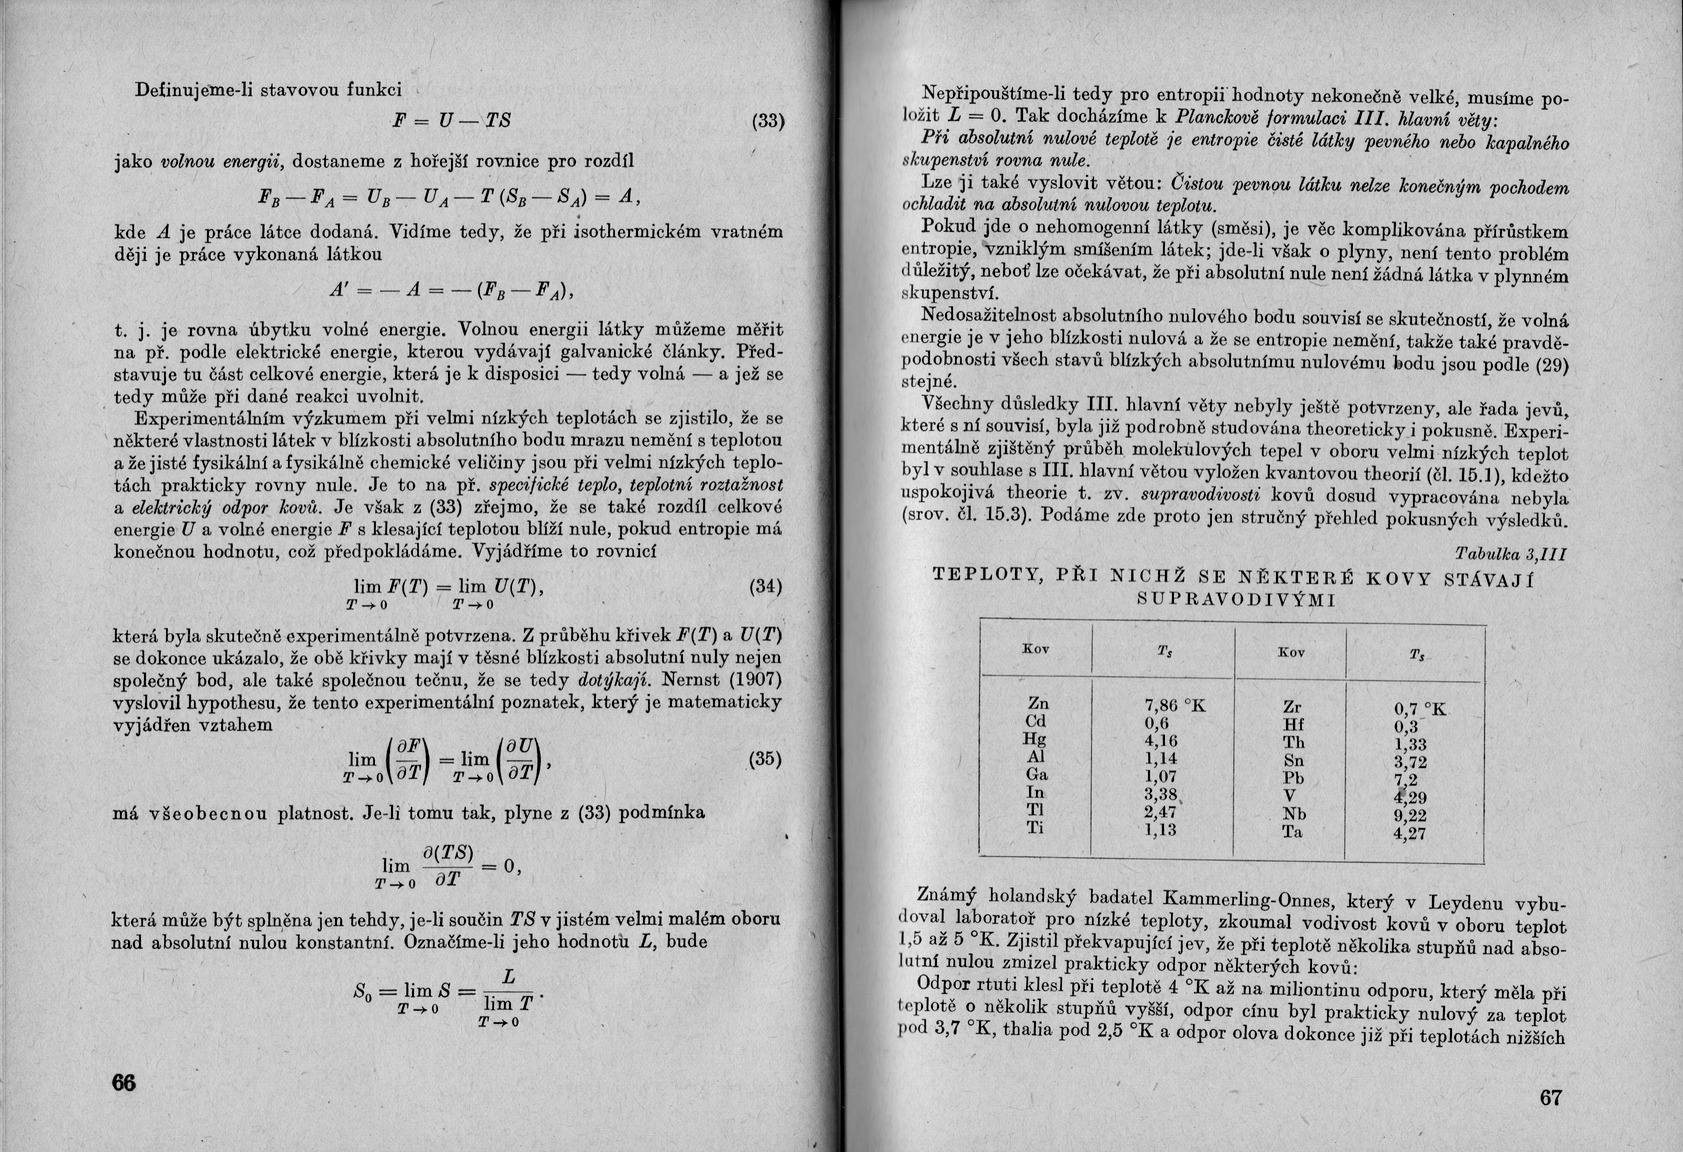 Definujeme-li stavovou funkci
F = U — TS (33)
jako volnou energii, dostaneme z hořejší rovnice pro rozdíl
F_B — F_A = U_B — U_A — T (S_B — S_A) = A,
kde A je práce látce dodaná. Vidíme tedy, že při isothermickém vratném
ději je práce vykonaná látkou
A′ = — A = — (F_B — F_A),
t. j. je rovna úbytku volné energie. Volnou energii látky můžeme měřit
na př. podle elektrické energie, kterou vydávají galvanické články. Před-
stavuje tu část celkové energie, která je k disposici — tedy volná — a jež se
tedy může při dané reakci uvolnit.
Experimentálním výzkumem při velmi nízkých teplotách se zjistilo, že se
některé vlastnosti látek v blízkosti absolutního bodu mrazu nemění s teplotou
a že jisté fysikální a fysikálně chemické veličiny jsou při velmi nízkých teplo-
tách prakticky rovny nule. Je to na př. specifické teplo, teplotní roztažnost
a elektrický odpor kovů. Je však z (33) zřejmo, že se také rozdíl celkové
energie U a volné energie F s klesající teplotou blíží nule, pokud entropie má
konečnou hodnotu, což předpokládáme. Vyjádříme to rovnicí
lim F(T) = lim U(T), (34)
T→0 T→0
která byla skutečně experimentálně potvrzena. Z průběhu křivek F(T) a U(T)
se dokonce ukázalo, že obě křivky mají v těsné blízkosti absolutní nuly nejen
společný bod, ale také společnou tečnu, že se tedy dotýkají. Nernst (1907)
vyslovil hypothesu, že tento experimentální poznatek, který je matematicky
vyjádřen vztahem
lim (∂F/∂T) = lim (∂U/∂T), (35)
T→0 T→0
má všeobecnou platnost. Je-li tomu tak, plyne z (33) podmínka
lim ∂(TS)/∂T = 0,
T→0
která může být splněna jen tehdy, je-li součin TS v jistém velmi malém oboru
nad absolutní nulou konstantní. Označíme-li jeho hodnotu L, bude
S₀ = lim S = L / lim T.
T→0 T→0
66
Nepřipouštíme-li tedy pro entropii hodnoty nekonečně velké, musíme po-
ložit L = 0. Tak docházíme k Planckově formulaci III. hlavní věty:
Při absolutní nulové teplotě je entropie čisté látky pevného nebo kapalného
skupenství rovna nule.
Lze ji také vyslovit větou: Čistou pevnou látku nelze konečným pochodem
ochladit na absolutní nulovou teplotu.
Pokud jde o nehomogenní látky (směsi), je věc komplikována přírůstkem
entropie, vzniklým smíšením látek; jde-li však o plyny, není tento problém
důležitý, neboť lze očekávat, že při absolutní nule není žádná látka v plynném
skupenství.
Nedosažitelnost absolutního nulového bodu souvisí se skutečností, že volná
energie je v jeho blízkosti nulová a že se entropie nemění, takže také pravdě-
podobnosti všech stavů blízkých absolutnímu nulovému bodu jsou podle (29)
stejné.
Všechny důsledky III. hlavní věty nebyly ještě potvrzeny, ale řada jevů,
které s ní souvisí, byla již podrobně studována theoreticky i pokusně. Experi-
mentálně zjištěný průběh molekulových tepel v oboru velmi nízkých teplot
byl v souhlase s III. hlavní větou vyložen kvantovou theorií (čl. 15.1), kdežto
uspokojivá theorie t. zv. supravodivosti kovů dosud vypracována nebyla
(srov. čl. 15.3). Podáme zde proto jen stručný přehled pokusných výsledků.
Tabulka 3,III
TEPLOTY, PŘI NICHŽ SE NĚKTERÉ KOVY STÁVAJÍ
SUPRAVODIVÝMI
Kov T_s Kov T_s
Zn 7,86 °K Zr 0,7 °K
Cd 0,6 Hf 0,3
Hg 4,16 Th 1,33
Al 1,14 Sn 3,72
Ga 1,07 Pb 7,2
In 3,38 V 4,29
Tl 2,47 Nb 9,22
Ti 1,13 Ta 4,27
Známý holandský badatel Kammerling-Onnes, který v Leydenu vybu-
doval laboratoř pro nízké teploty, zkoumal vodivost kovů v oboru teplot
1,5 až 5 °K. Zjistil překvapující jev, že při teplotě několika stupňů nad abso-
lutní nulou zmizel prakticky odpor některých kovů:
Odpor rtuti klesl při teplotě 4 °K až na miliontinu odporu, který měla při
teplotě o několik stupňů vyšší, odpor cínu byl prakticky nulový za teplot
pod 3,7 °K, thalia pod 2,5 °K a odpor olova dokonce již při teplotách nižších
67